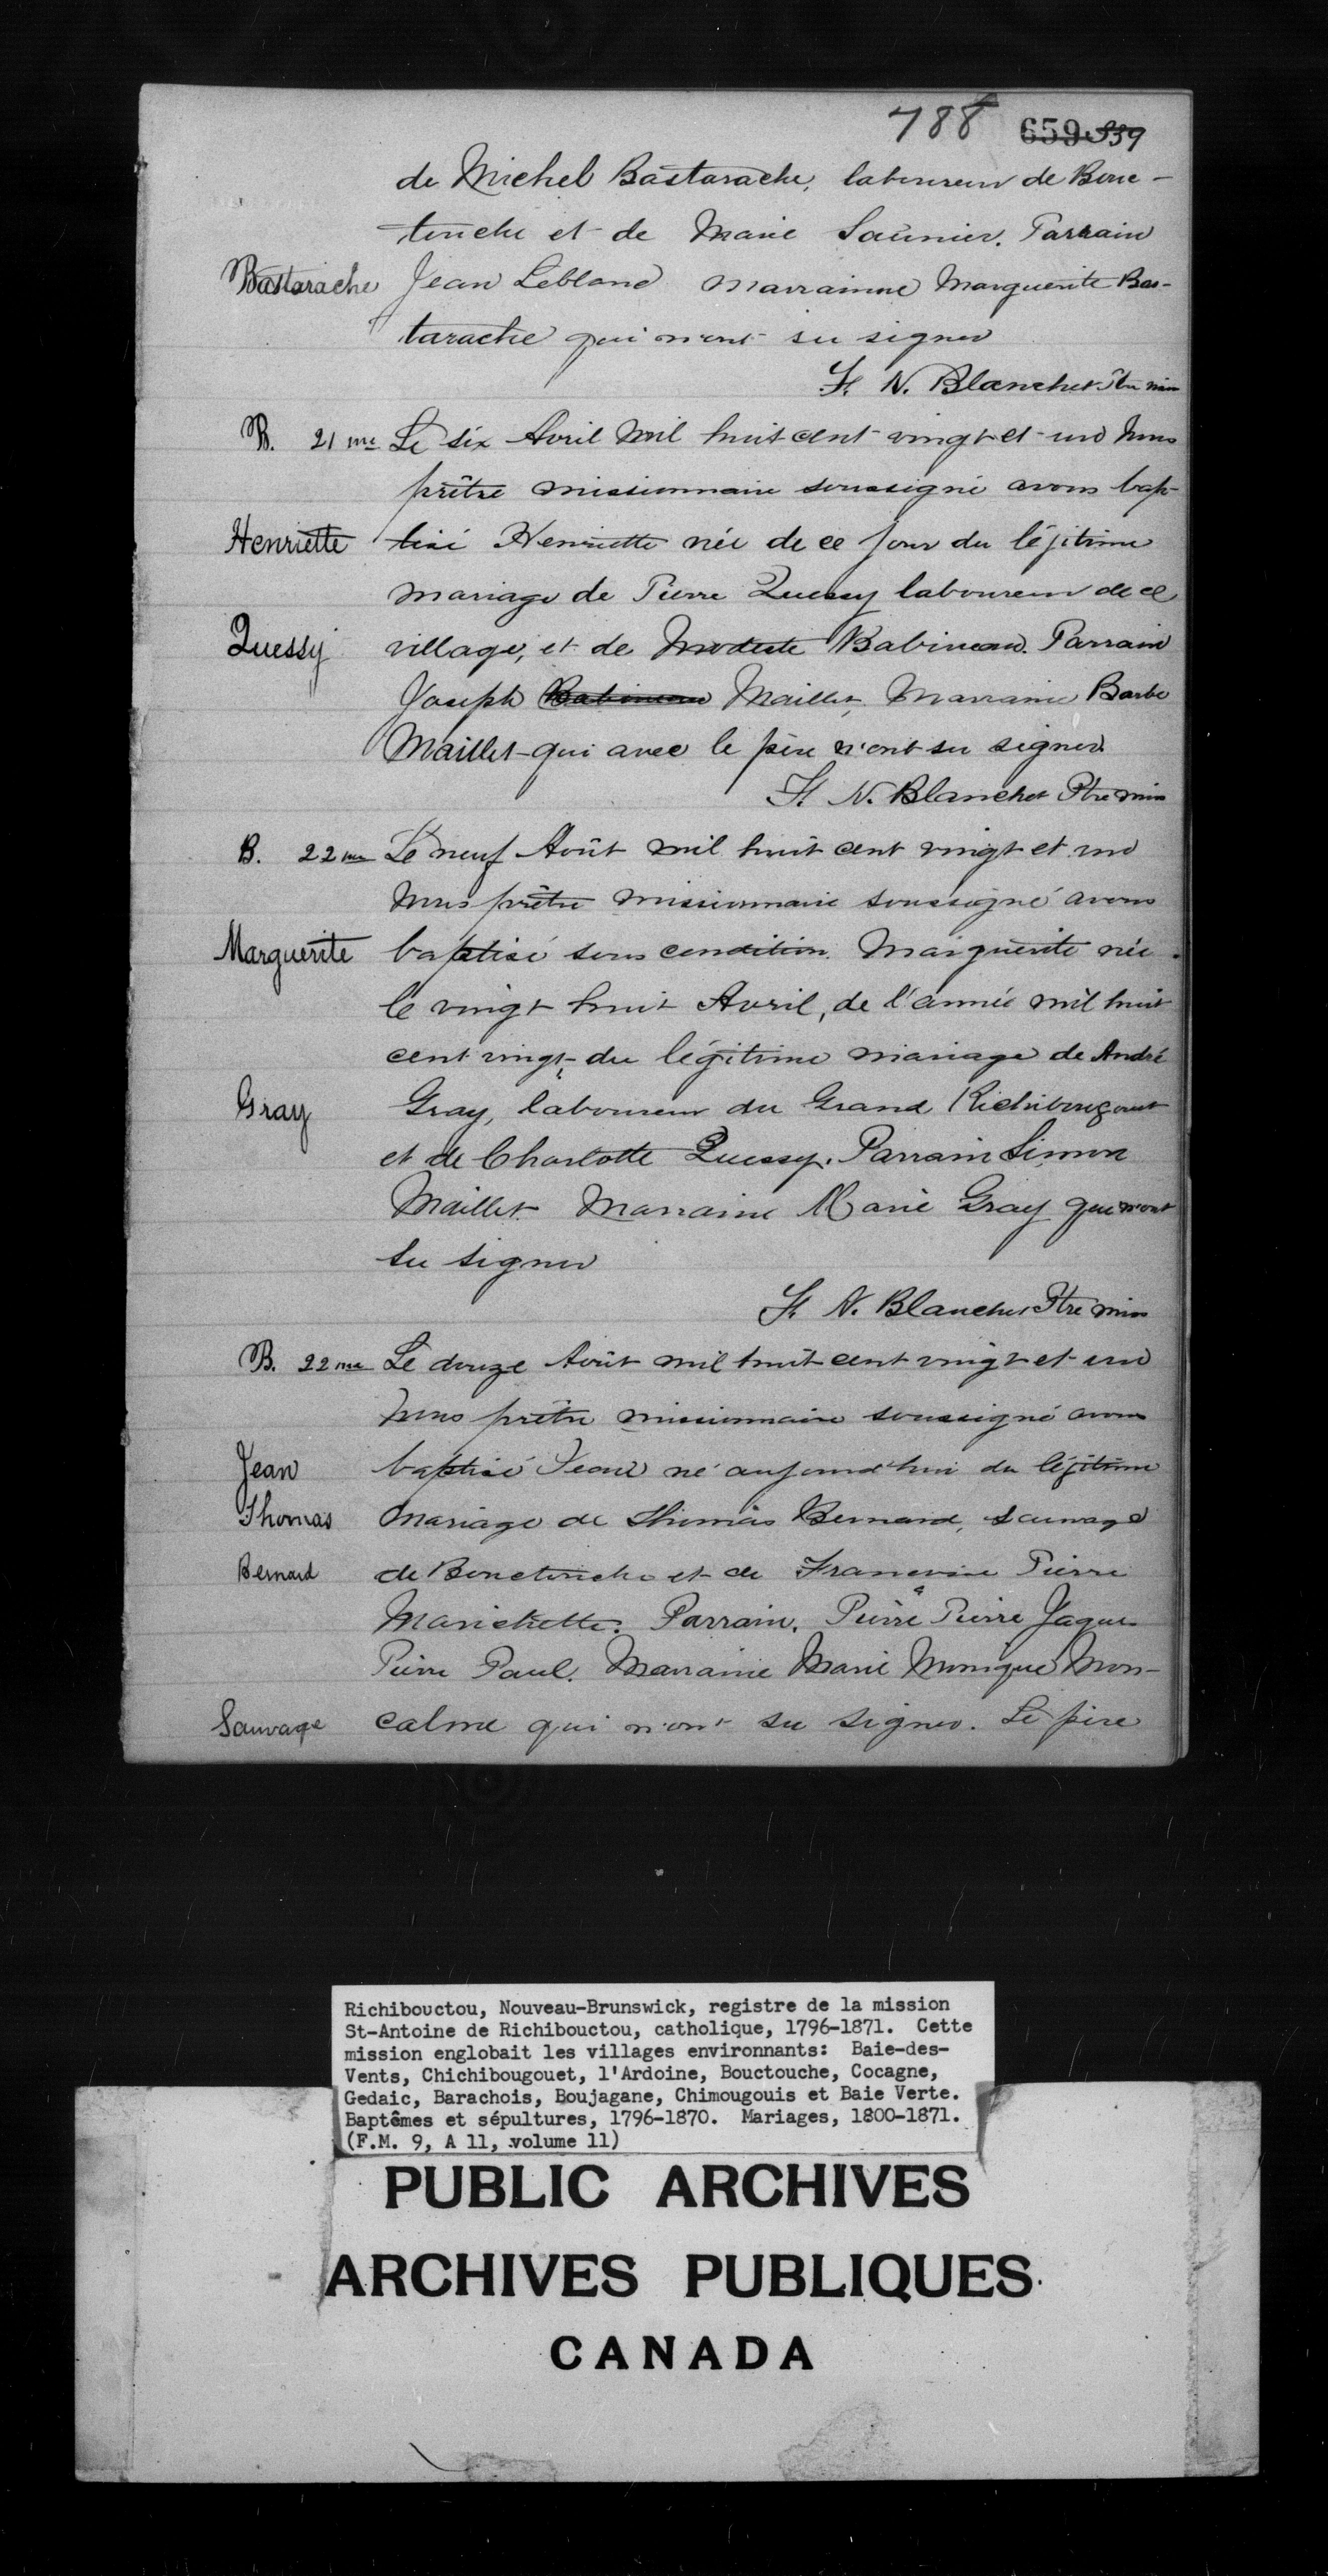 788 659 339
de Michel Bastarache, laboureur de Bouc-
touche et de Marie Saunier. Parrain
Bastarache Jean Leblanc marrainne Marguerite Bas-
tarache qui n'ont su signer
F. N. Blanchet Ptre miss
B. 21me Le six Avril mil huit cent vingt et un Nous
prêtre missionnaire soussigné avons bap-
Henriette tisé Henriette née de ce jour du légitime
mariage de Pierre Quessy laboureur de ce
Quessy village, et de Modeste Babineau. Parrain
Joseph Babineau Maillet, Marraine Barbe
Maillet qui avec le père n'ont su signer.
F. N. Blanchet Ptre miss
B. 22me Le neuf Août mil huit cent vingt et un
Nous prêtre missionnaire soussigné avons
Marguerite baptisé sous condition Marguerite née
le vingt huit Avril, de l'année mil huit
cent vingt, du légitime mariage de André
Gray Gray, laboureur du Grand Richibougouet
et de Charlotte Quessy. Parrain Simon
Maillet Marraine Marie Gray qui n'ont
su signer
F. N. Blanchet Ptre miss
B. 22me Le douze Août mil huit cent vingt et un
Nous prêtre missionnaire soussigné avons
Jean baptisé Jean né aujourd'hui du légitime
Thomas mariage de Thomas Bernard, Sauvage
Bernard de Bouctouche et de Francoise Pierre
Marichette. Parrain, Pierre Pierre Jaques
Pierre Paul. Marraine Marie Monique Mon-
Sauvage calme qui n'ont su signer. Le père
Richibouctou, Nouveau-Brunswick, registre de la mission
St-Antoine de Richibouctou, catholique, 1796-1871. Cette
mission englobait les villages environnants: Baie-des-
Vents, Chichibougouet, l'Ardoine, Bouctouche, Cocagne,
Gedaic, Barachois, Boujagane, Chimougouis et Baie Verte.
Baptêmes et sépultures, 1796-1870. Mariages, 1800-1871.
(F.M. 9, A 11, volume 11)
PUBLIC ARCHIVES
ARCHIVES PUBLIQUES
CANADA